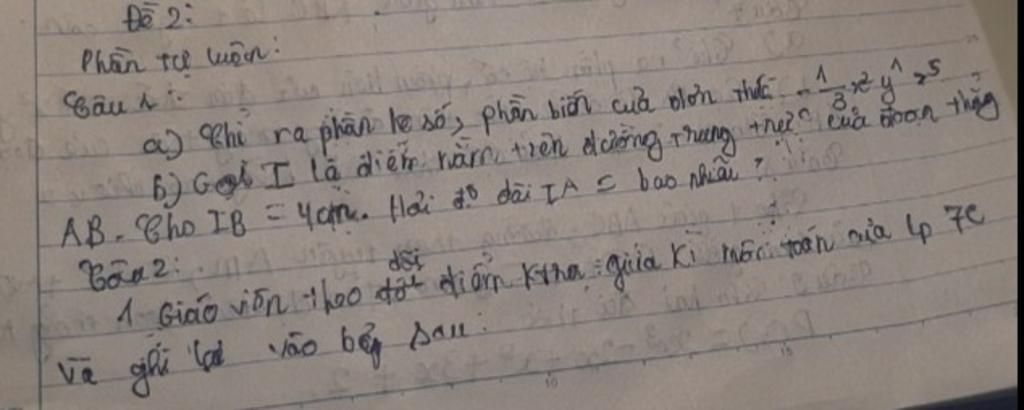 Đề 2:
Phần tự luận:
Câu 1:
a) Chỉ ra phần hệ số, phần biến của đơn thức -1/3 x² y¹ z⁵
b) Gọi I là điểm nằm trên đường trung trực của đoạn thẳng
AB. Cho IB = 4cm. Hỏi độ dài IA = bao nhiêu?
Câu 2:
dõi
1. Giáo viên theo điểm ktra giữa kì môn toán của lp 7C
và ghi lại vào bảng sau: